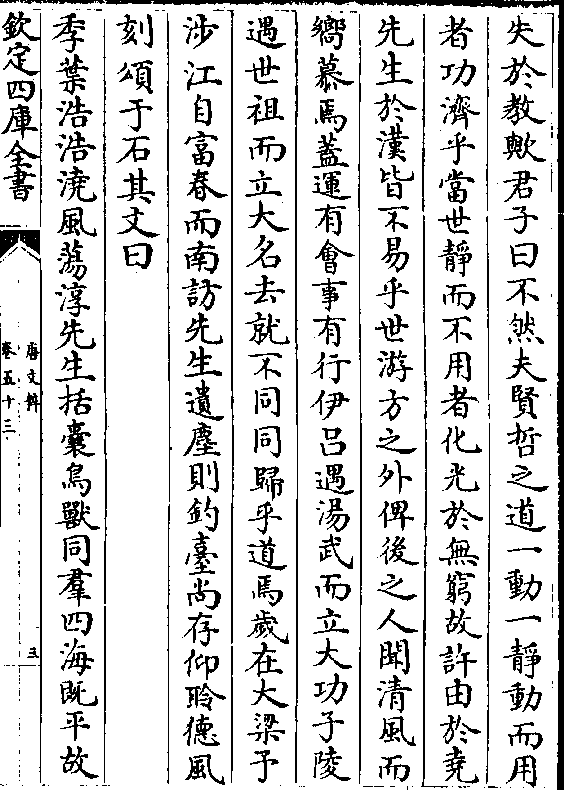 失於教歟君子曰不然夫賢哲之道一動一靜動而用
者功濟乎當世靜而不用者化光於無窮故許由於堯
先生於漢皆不易乎世游方之外俾後之人聞清風而
嚮慕焉蓋運有會事有行伊吕遇湯武而立大功子陵
遇世祖而立大名去就不同同歸乎道焉歲在大梁予
涉江自富春而南訪先生遺塵則釣臺尚存仰聆德風
刻頌于石其文曰
季葉浩浩澆風蕩淳先生括囊鳥獸同羣四海既平故
欽定四庫全書
唐文粹
卷五十三
三